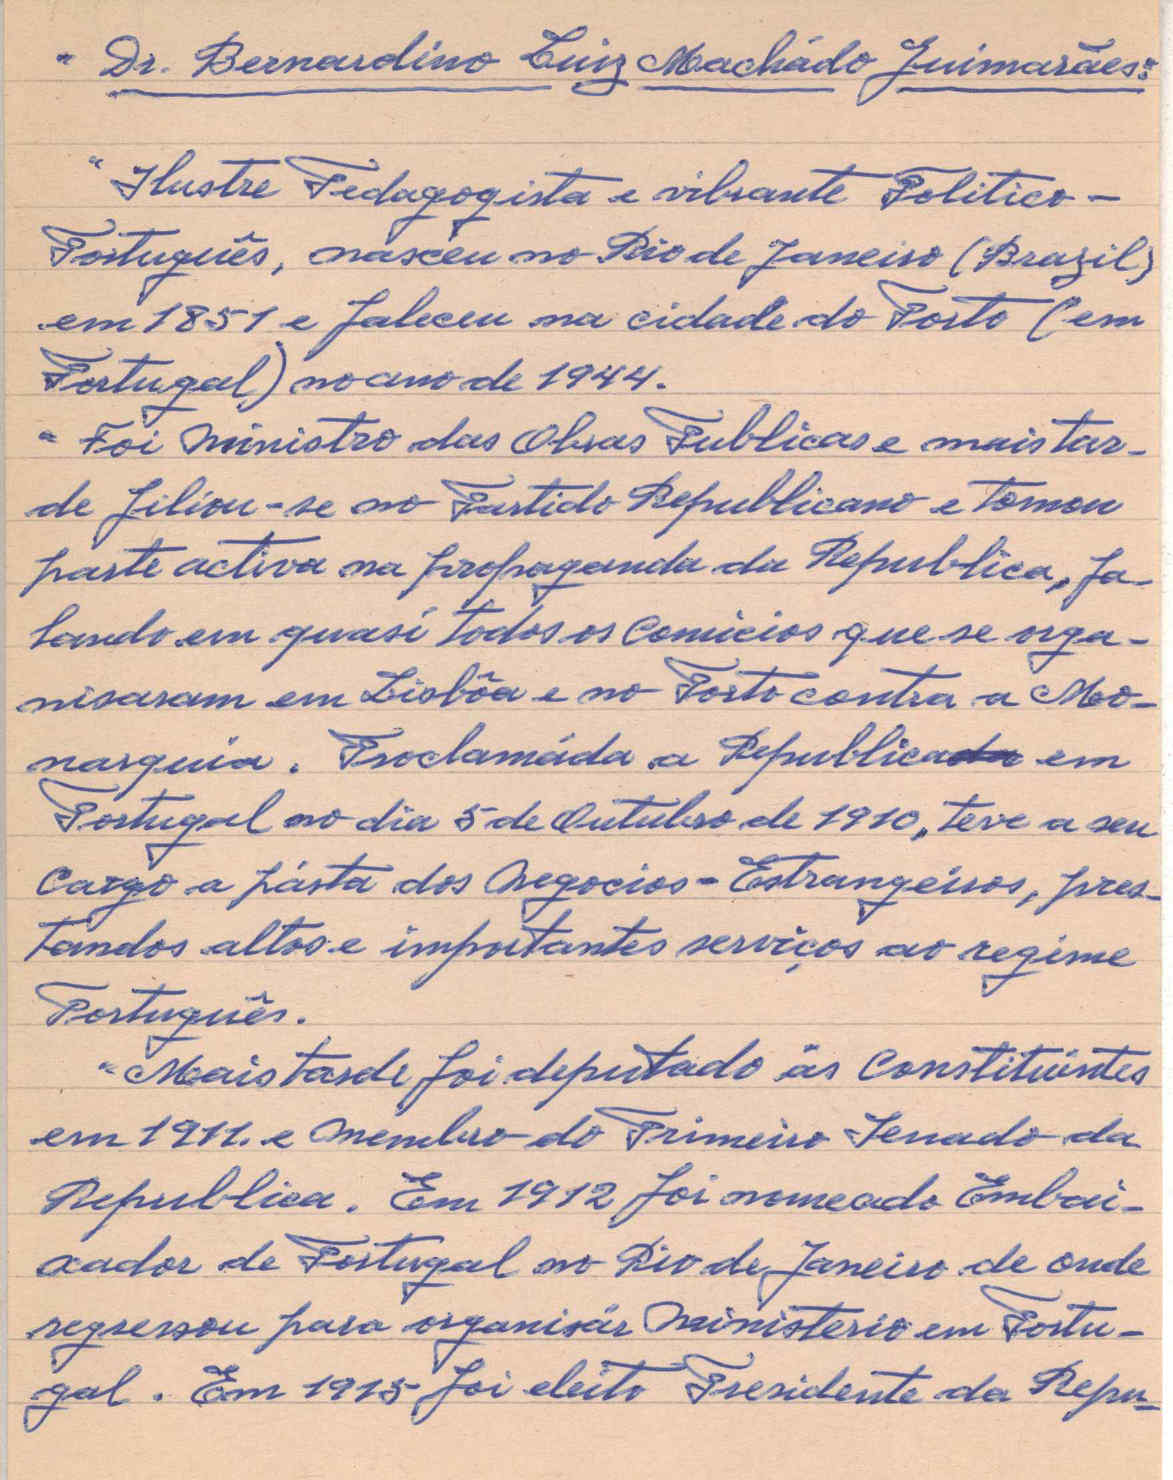 " Dr. Bernardino Luiz Machádo Guimarães"
" Ilustre Pedagogista e vibrante Politico -
Português, nasceu no Rio de Janeiro (Brazil)
em 1851 e faleceu na cidade do Porto (em
Portugal) no ano de 1944.
" Foi Ministro das Obras Publicas e mais tar-
de filiou-se no Partido Republicano e tomou
parte activa na propaganda da Republica, fa-
lando em quasi todos os comicios que se orga-
nisaram em Lisbôa e no Porto contra a Mo-
narquia. Proclamáda a Republica em
Portugal no dia 5 de Outubro de 1910, teve a seu
cargo a pásta dos Negocios - Estrangeiros, pres-
tandos altos e importantes serviços ao regime
Português.
" Mais tarde foi deputado ás Constituintes
em 1911. e membro do Primeiro Senado da
Republica. Em 1912 foi nomeado Embai-
xador de Portugal no Rio de Janeiro de onde
regressou para organisár Ministerio em Portu-
gal. Em 1915 foi eleito Presidente da Repu-